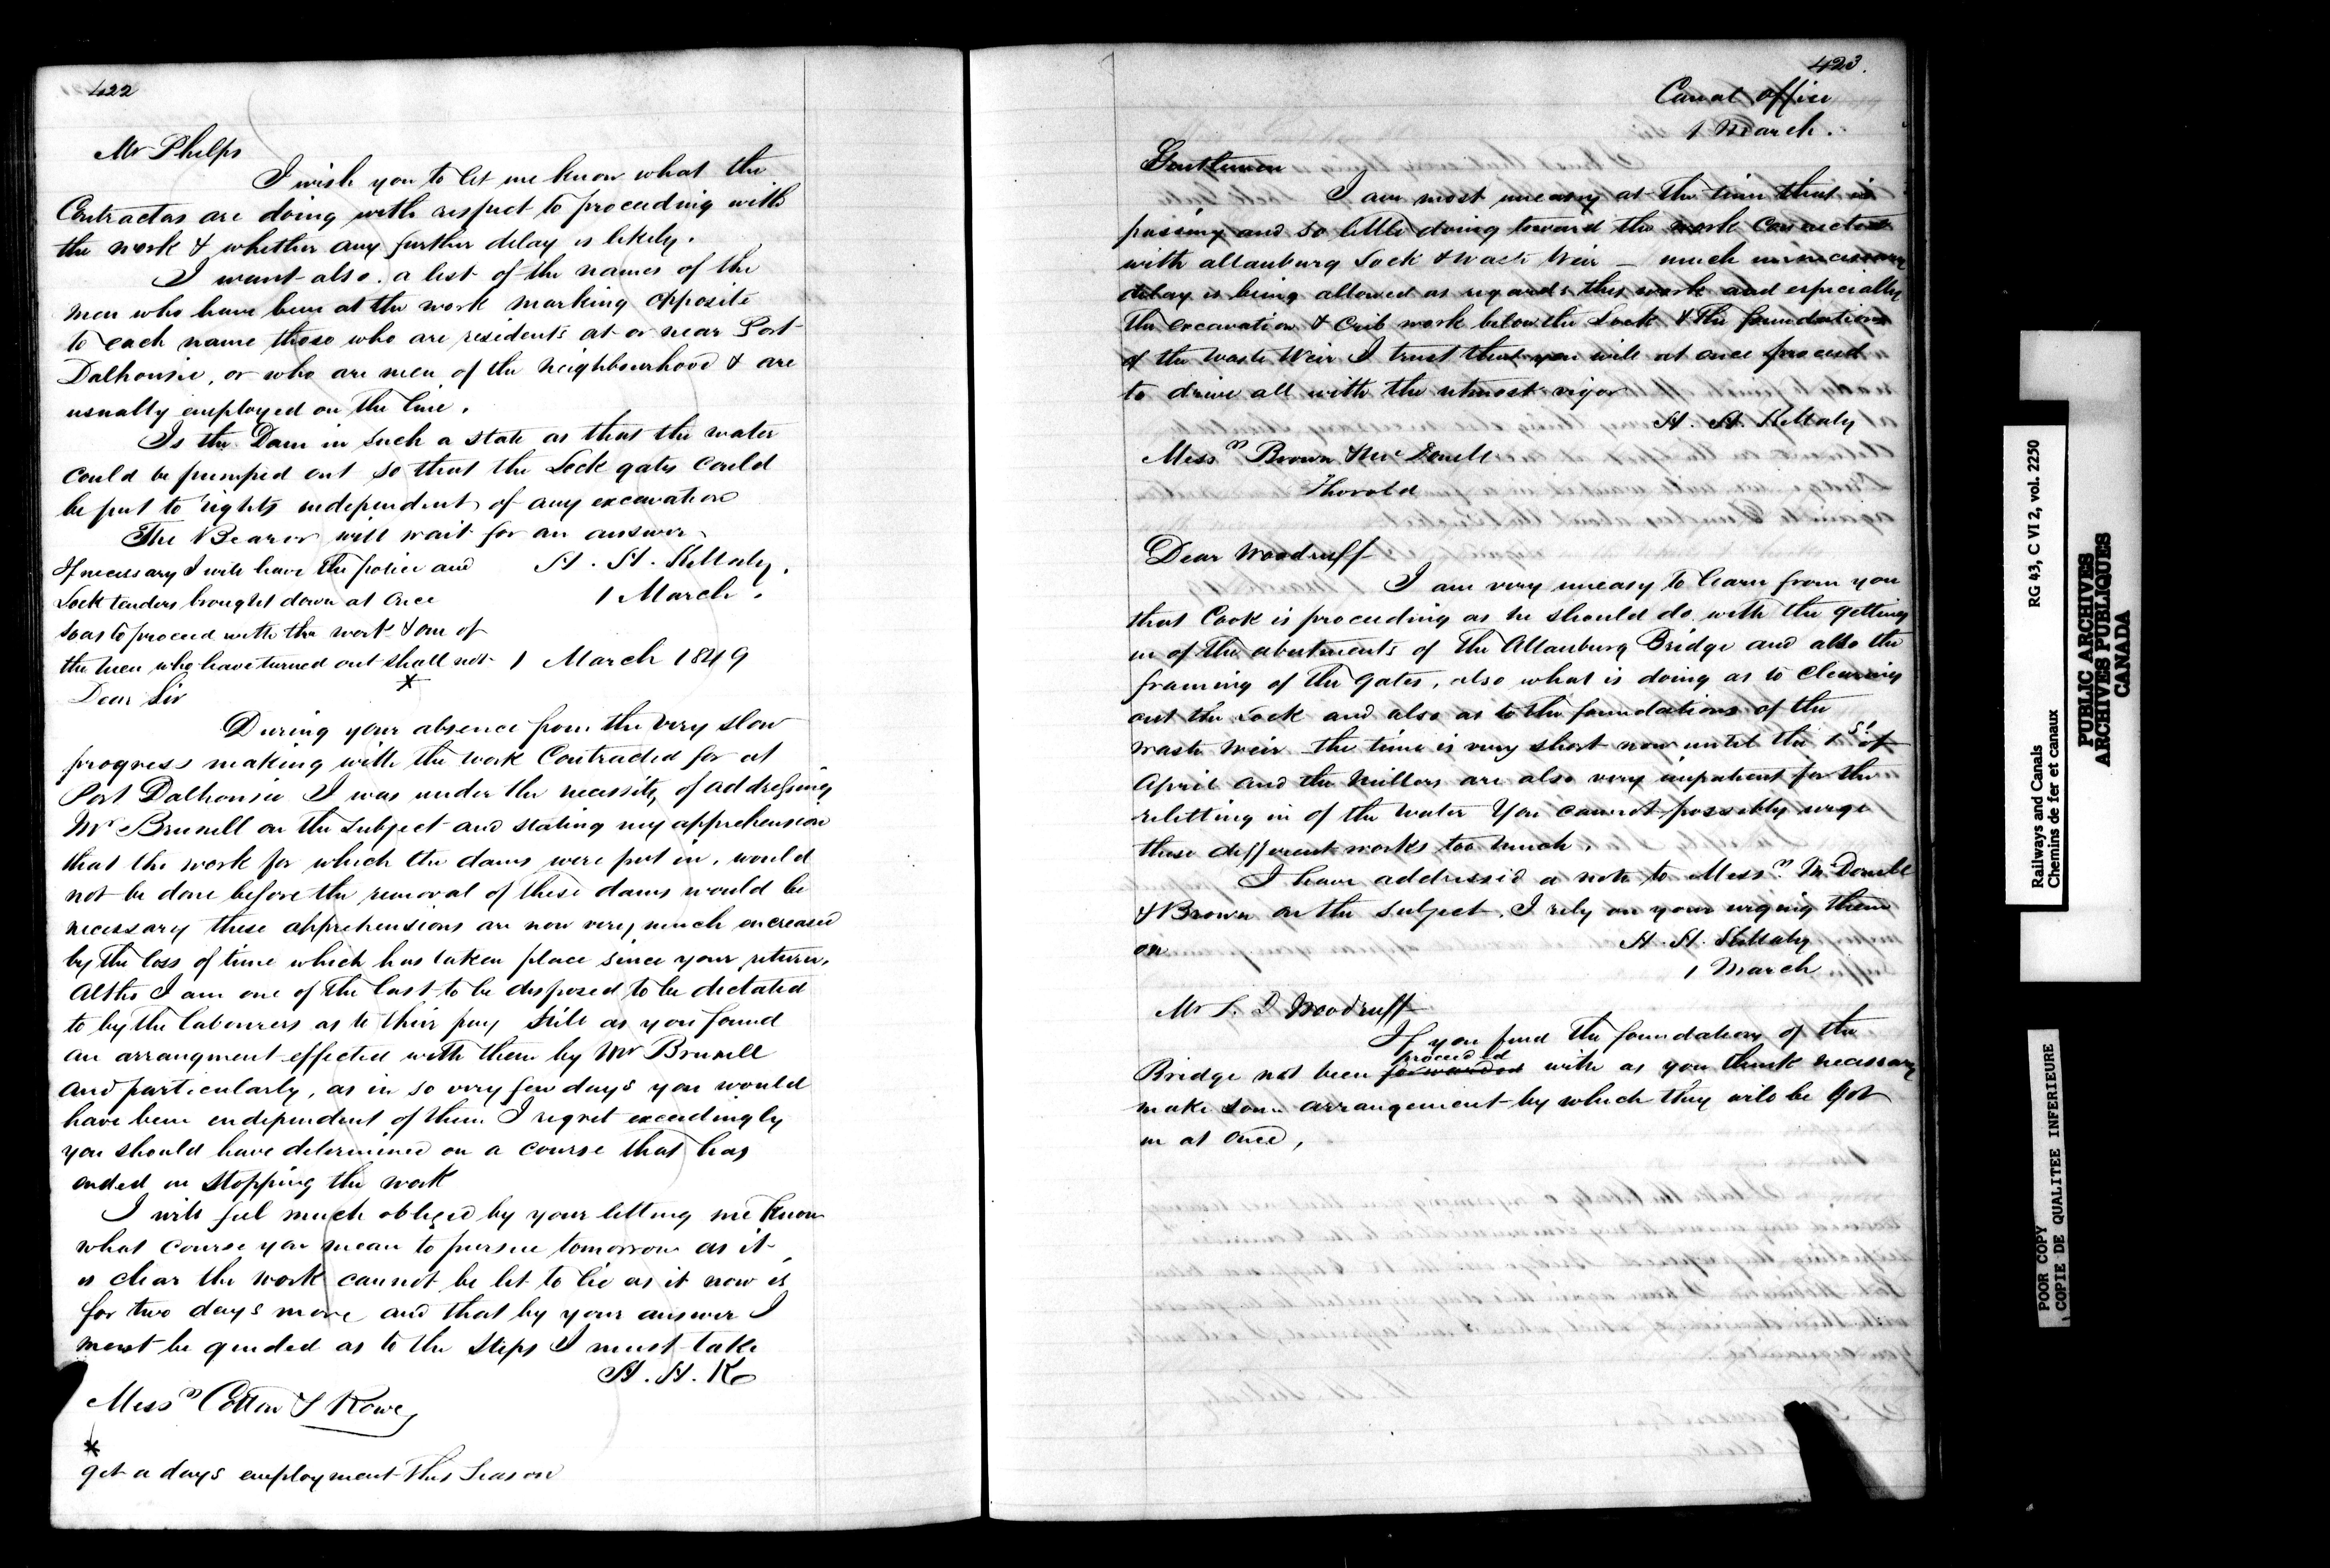 422
Mr Phelps
I wish you to let me know what the
Contractors are doing with respect to proceeding with
the work & whether any further delay is likely.
I want also a list of the names of the
men who have been at the work marking opposite
to each name those who are residents at or near Port
Dalhousie, or who are men of the Neighbourhood & are
usually employed on the line.
Is the Dam in such a state as that the water
could be pumped out so that the Lock gates could
be put to rights independent of any excavation
The Bearer will wait for an answer
If necessary I will have the police and
H. H. Killaly.
Lock tenders brought down at once
1 March.
so as to proceed with the work & one of
the men who have turned out shall not
*
1 March 1849
Dear Sir
During your absence from the very slow
progress making with the work Contracted for at
Port Dalhousie I was under the necessity of addressing
Mr Brunell on the subject and stating my apprehension
that the work for which the dams were put in, would
not be done before the removal of these dams would be
necessary these apprehensions are now very much encreased
by the loss of time which has taken place since your return.
Altho I am one of the last to be disposed to be dictated
to by the labourers as to their pay still as you found
an arrangment effected with them by Mr Brunell
and particularly, as in so very few days you would
have been independent of them I regret exceedingly
you should have determined on a course that has
ended in stopping the work
I will feel much obliged by your letting me know
what course you mean to pursue tomorrow as it
is clear the work cannot be let to lie as it now is
for two days more and that by your answer I
must be guided as to the steps I must take
H. H. K
Messrs Cotton & Rowe
*
get a days employment this Season
423.
Canal office
1 March.
Gentlemen
I am most uneasy at the time that is
passing and so little doing toward the work Connected
with Allanburg Lock & Waste Weir — much unnecessary
delay is being allowed as regards this work and especially
the excavation & Crib work below the Lock & the foundations
of the Waste Weir I trust that you will at once proceed
to drive all with the utmost vigor
H. H. Killaly
Messrs Brown & McDonell
Thorold
Dear Woodruff
I am very uneasy to learn from you
that Cook is proceeding as he should do with the getting
in of the abutments of the Allanburg Bridge and also the
framing of the gates, also what is doing as to clearing
out the Lock and also as to the foundations of the
Waste Weir the time is very short now until the 1st of
April and the Millers are also very impatient for the
reletting in of the water You cannot possibly urge
these different works too much.
I have addressed a note to Messrs McDonell
& Brown on the subject. I rely on your urging them
on
H. H. Killaly
1 March
Mr S. D Woodruff
If you find the foundations of the
proceeded
Bridge not been forwarded with as you think necessary
make some arrangement by which they will be got
in at once,
RG 43, C VI 2, vol. 2250
Railways and Canals
Chemins de fer et canaux
PUBLIC ARCHIVES
ARCHIVES PUBLIQUES
CANADA
POOR COPY
COPIE DE QUALITEE INFERIEURE